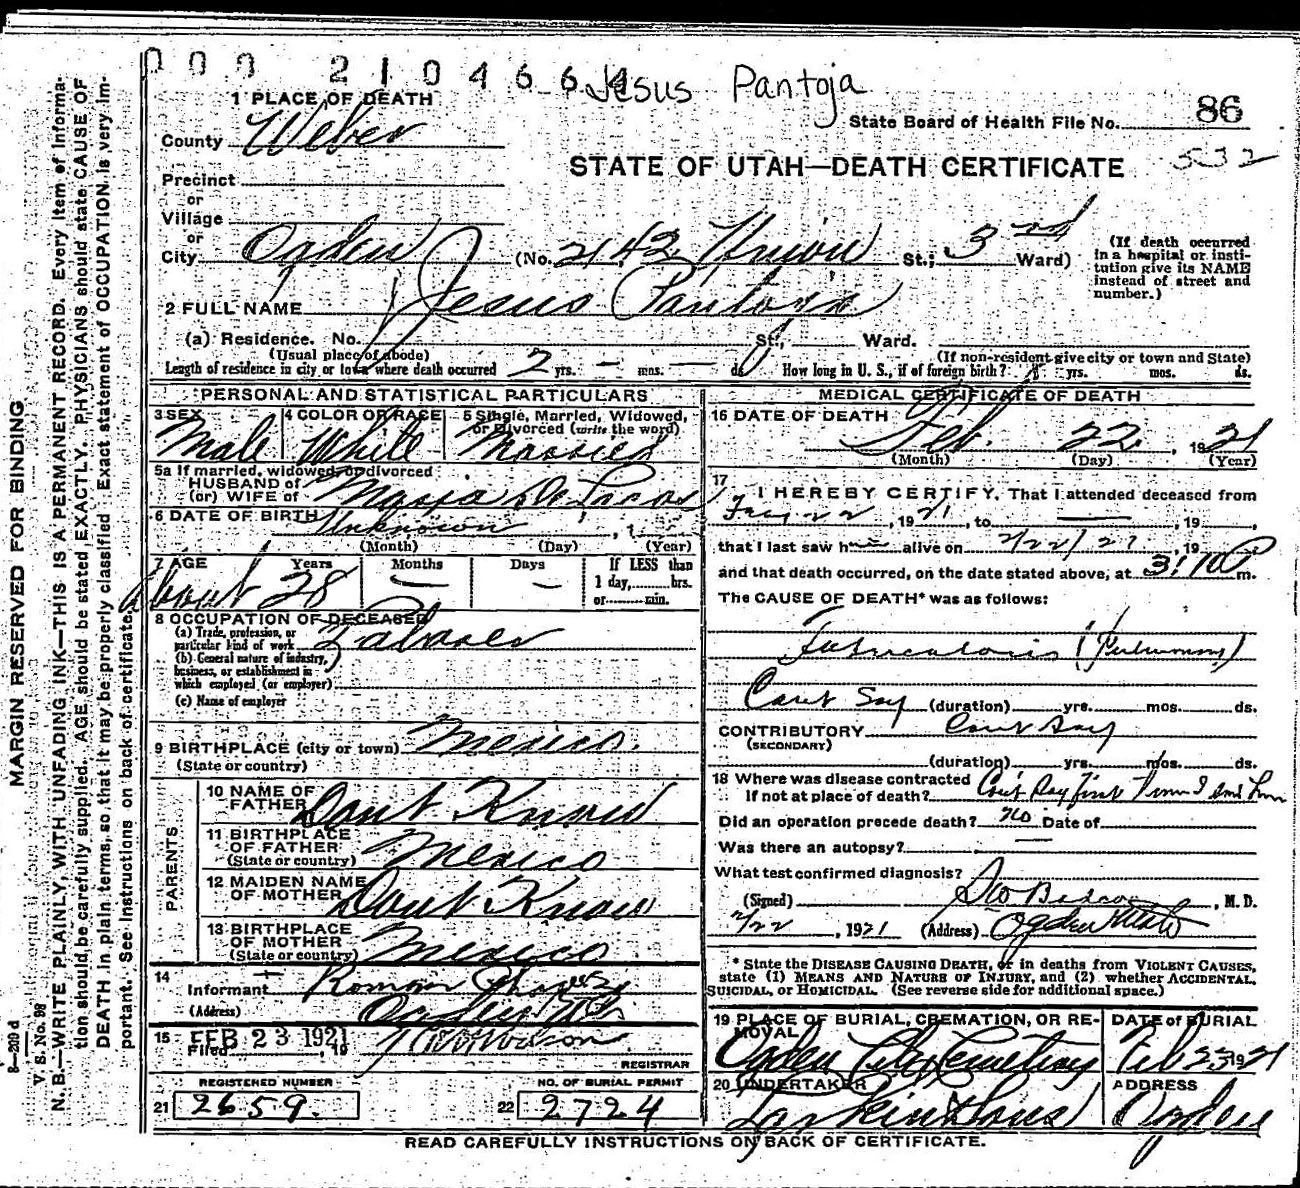 0 0 0 2 1 0 4 6 6 4 Jesus Pantoja
86
State Board of Health File No.
532
STATE OF UTAH—DEATH CERTIFICATE
1 PLACE OF DEATH
County Weber
Precinct
or
Village
or
City Ogden (No. 2142 St.; 3rd Ward)
(If death occurred in a hospital or institution give its NAME instead of street and number.)
2 FULL NAME Jesus Pantoja
(a) Residence. No. St., Ward.
(Usual place of abode) (If non-resident give city or town and State)
Length of residence in city or town where death occurred 2 yrs. — mos. — ds. How long in U. S., if of foreign birth? yrs. mos. ds.
PERSONAL AND STATISTICAL PARTICULARS
3 SEX Male
4 COLOR OR RACE White
5 Single, Married, Widowed, or Divorced (write the word) Married
5a If married, widowed, or divorced
HUSBAND of
(or) WIFE of Maria De
6 DATE OF BIRTH Unknown , 1
(Month) (Day) (Year)
7 AGE Years Months Days If LESS than
1 day, hrs.
or min.
About 28 — —
8 OCCUPATION OF DECEASED
(a) Trade, profession, or
particular kind of work Laborer
(b) General nature of industry,
business, or establishment in
which employed (or employer)
(c) Name of employer
9 BIRTHPLACE (city or town) Mexico.
(State or country)
PARENTS
10 NAME OF
FATHER Dont Know
11 BIRTHPLACE
OF FATHER
(State or country) Mexico
12 MAIDEN NAME
OF MOTHER Dont Know
13 BIRTHPLACE
OF MOTHER
(State or country) Mexico
14
Informant Roman
(Address) Ogden Utah
15 FEB 23 1921
Filed , 19
REGISTRAR
REGISTERED NUMBER
21 2659.
NO. OF BURIAL PERMIT
22 2724
MEDICAL CERTIFICATE OF DEATH
16 DATE OF DEATH Feb. 22, 1921
(Month) (Day) (Year)
17
I HEREBY CERTIFY, That I attended deceased from
22, 1921, to — , 19
that I last saw h alive on 2/22/21, 19
and that death occurred, on the date stated above, at 3:10 P m.
The CAUSE OF DEATH* was as follows:
Tuberculosis (Pulmonary)
Cant Say (duration) yrs. mos. ds.
CONTRIBUTORY Cant Say
(SECONDARY)
(duration) yrs. mos. ds.
18 Where was disease contracted
If not at place of death? Cant Say first time I saw him
Did an operation precede death? no Date of
Was there an autopsy? —
What test confirmed diagnosis?
(Signed) , M. D.
2/22, 1921 (Address) Ogden Utah
* State the DISEASE CAUSING DEATH, or in deaths from VIOLENT CAUSES,
state (1) MEANS AND NATURE OF INJURY, and (2) whether ACCIDENTAL,
SUICIDAL, or HOMICIDAL. (See reverse side for additional space.)
19 PLACE OF BURIAL, CREMATION, OR REMOVAL
Ogden City Cemetery
DATE of BURIAL
Feb 23 1921
20 UNDERTAKER
Larkin & Sons
ADDRESS
Ogden
READ CAREFULLY INSTRUCTIONS ON BACK OF CERTIFICATE.
MARGIN RESERVED FOR BINDING
N. B.—WRITE PLAINLY, WITH UNFADING INK—THIS IS A PERMANENT RECORD. Every item of information should be carefully supplied. AGE should be stated EXACTLY. PHYSICIANS should state CAUSE OF DEATH in plain terms, so that it may be properly classified. Exact statement of OCCUPATION is very important. See instructions on back of certificate.
V. S. No. 98